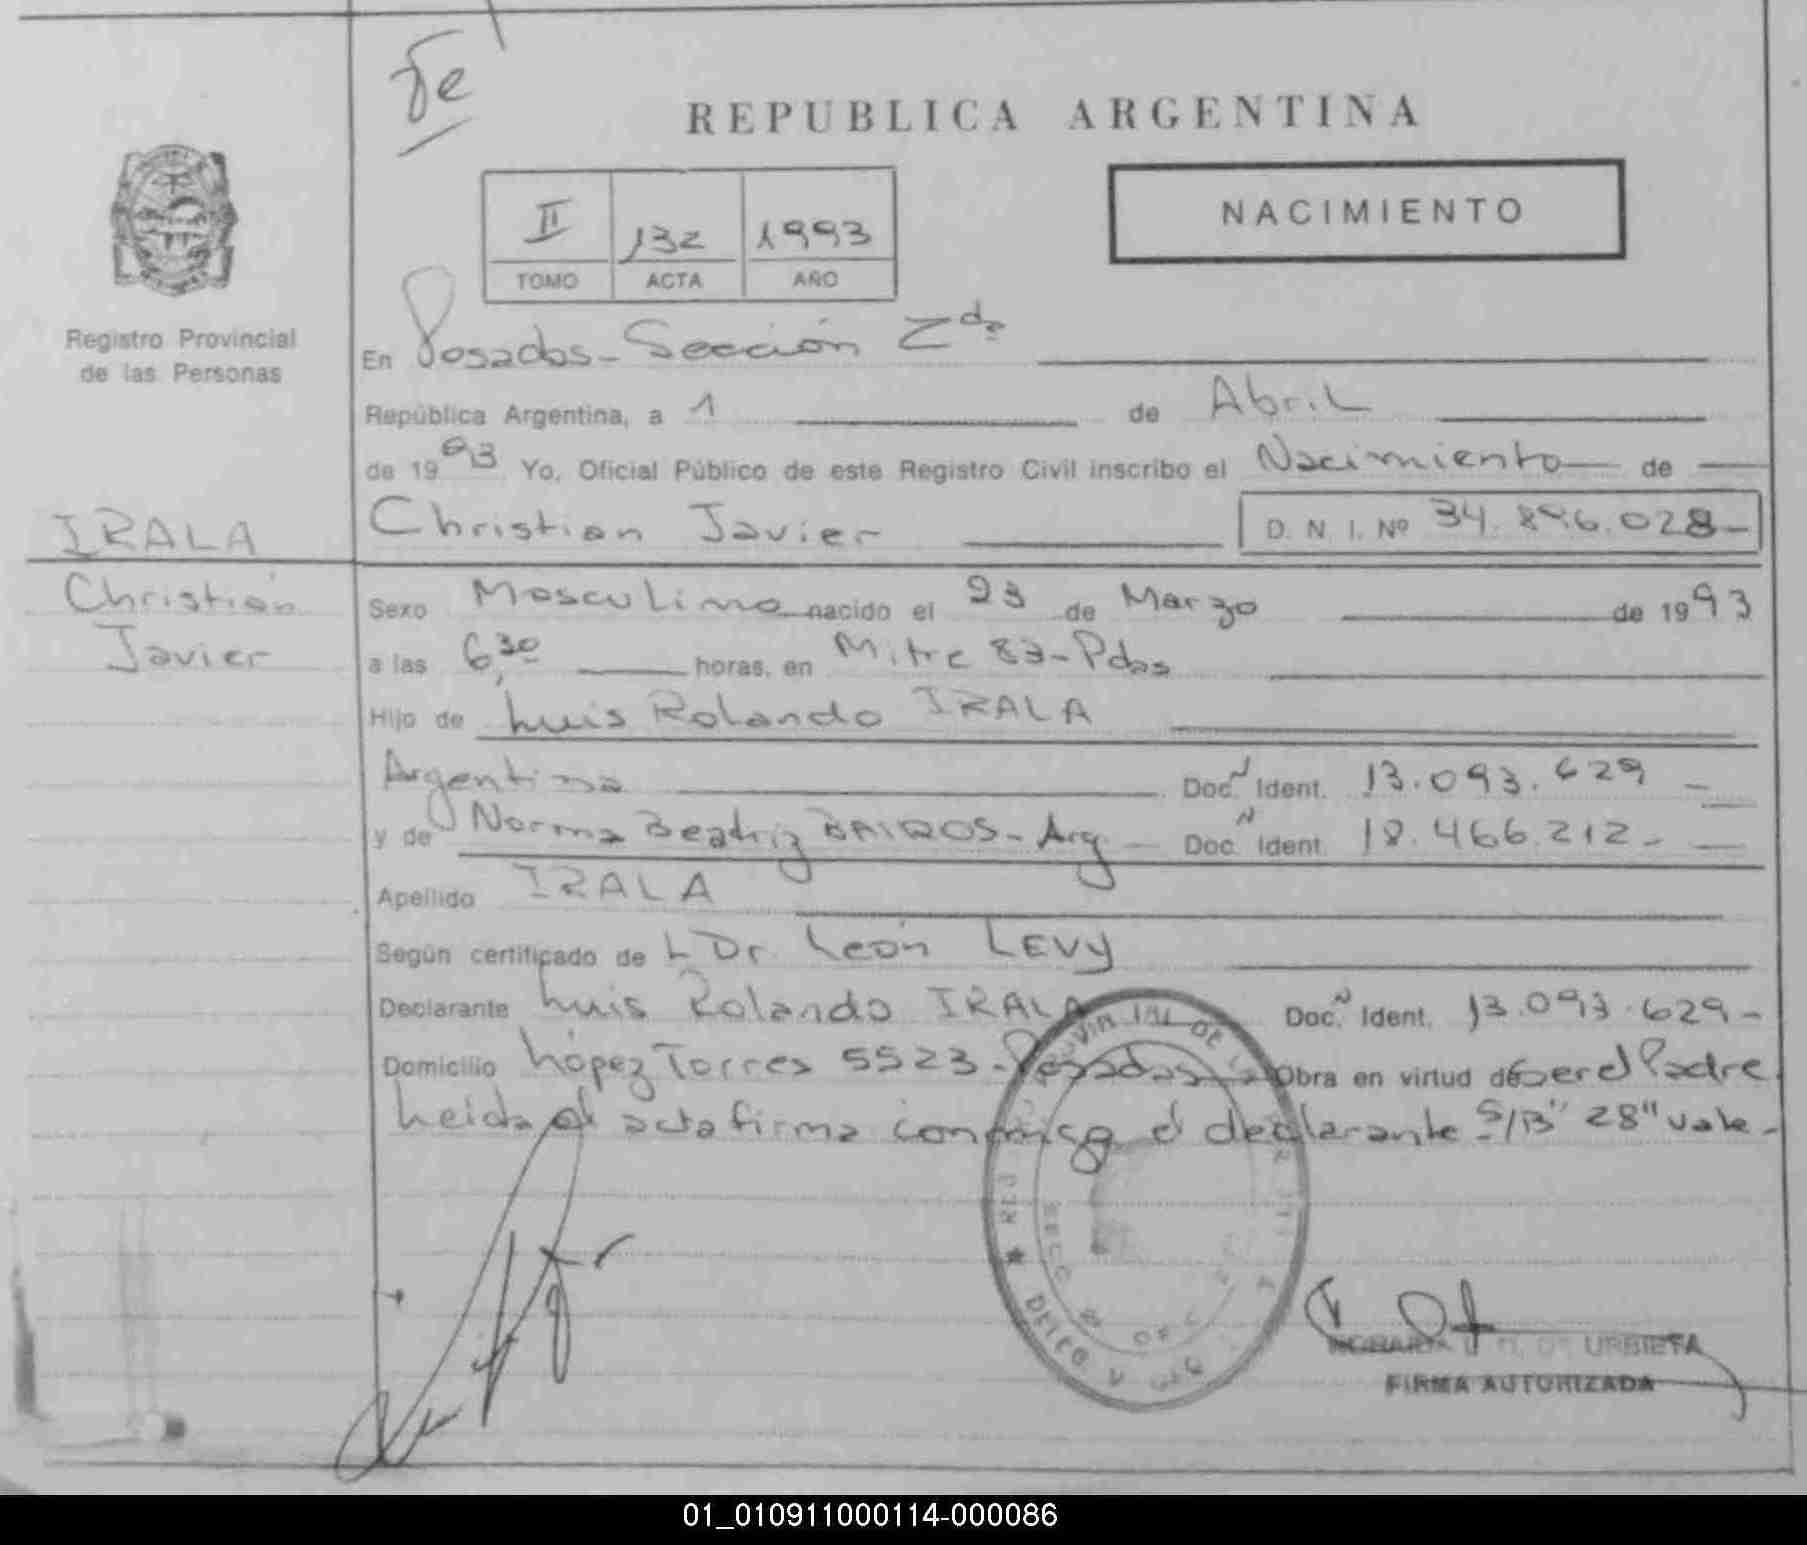 Fe
REPUBLICA ARGENTINA
NACIMIENTO
II 132 1993
TOMO ACTA AÑO
Registro Provincial
de las Personas
En Posadas - Sección 2da
República Argentina, a 1 de Abril
de 1993 Yo, Oficial Público de este Registro Civil inscribo el Nacimiento de
IRALA
Christian Javier D. N. I. Nº 34.896.028-
Christian
Javier
Sexo Masculino nacido el 23 de Marzo de 1993
a las 6,30 horas, en Mitre 83 - Pdas
Hijo de Luis Rolando IRALA
Argentina Doc. N Ident. 13.093.629
y de Norma Beatriz BAIROS - Arg Doc. N Ident. 18.466.212-
Apellido IRALA
Según certificado de L Dr. León LEVY
Declarante Luis Rolando IRALA Doc. N Ident. 13.093.629-
Domicilio López Torres 5523 - Posadas Obra en virtud de ser el Padre
Leida el acta firma conmigo el declarante S/B "28" vale-
DE URBIETA
FIRMA AUTORIZADA
01_010911000114-000086